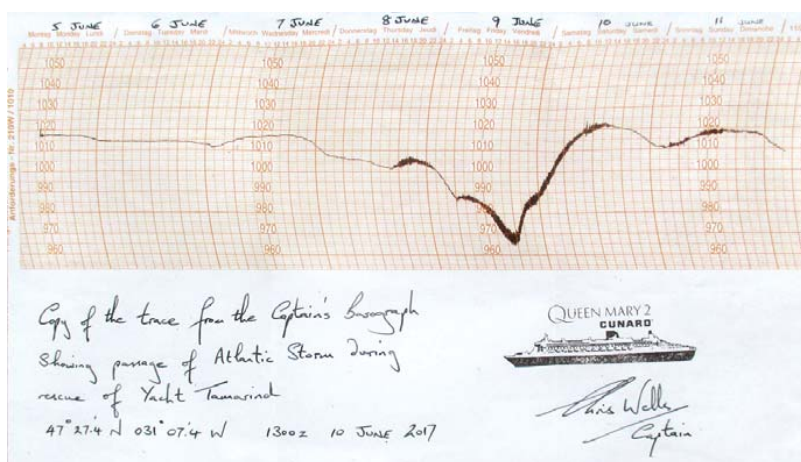 5 JUNE / 6 JUNE / 7 JUNE / 8 JUNE / 9 JUNE / 10 JUNE / 11 JUNE
Montag Monday Lundi / Dienstag Tuesday Mardi / Mittwoch Wednesday Mercredi / Donnerstag Thursday Jeudi / Freitag Friday Vendredi / Samstag Saturday Samedi / Sonntag Sunday Dimanche
1050 1050 1050 1050
1040 1040 1040 1040
1030 1030 1030 1030
1020 1020 1020 1020
1010 1010 1010 1010
1000 1000 1000 1000
990 990 990 990
980 980 980 980
970 970 970 970
960 960 960 960
Anforderungs - Nr. 210W / 1010
Copy of the trace from the Captain's Barograph
Showing passage of Atlantic Storm during
rescue of Yacht Tamarind
47° 27.4 N 031° 07.4 W 1300z 10 JUNE 2017
QUEEN MARY 2
CUNARD
Chris Wells
Captain